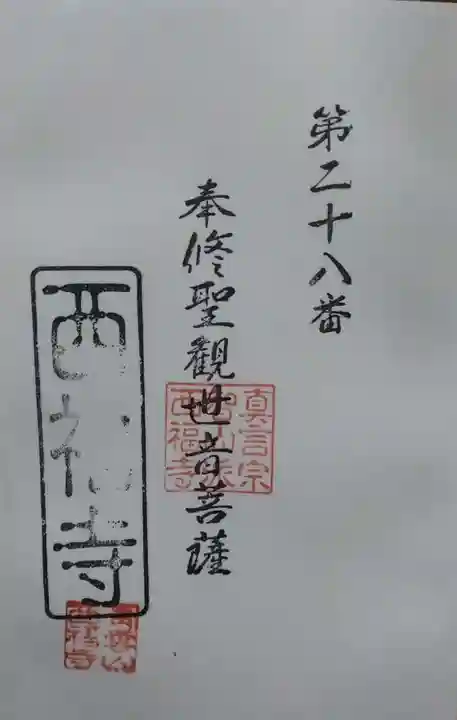 第二十八番
奉修聖觀世音菩薩
真言宗
西福寺
西福寺